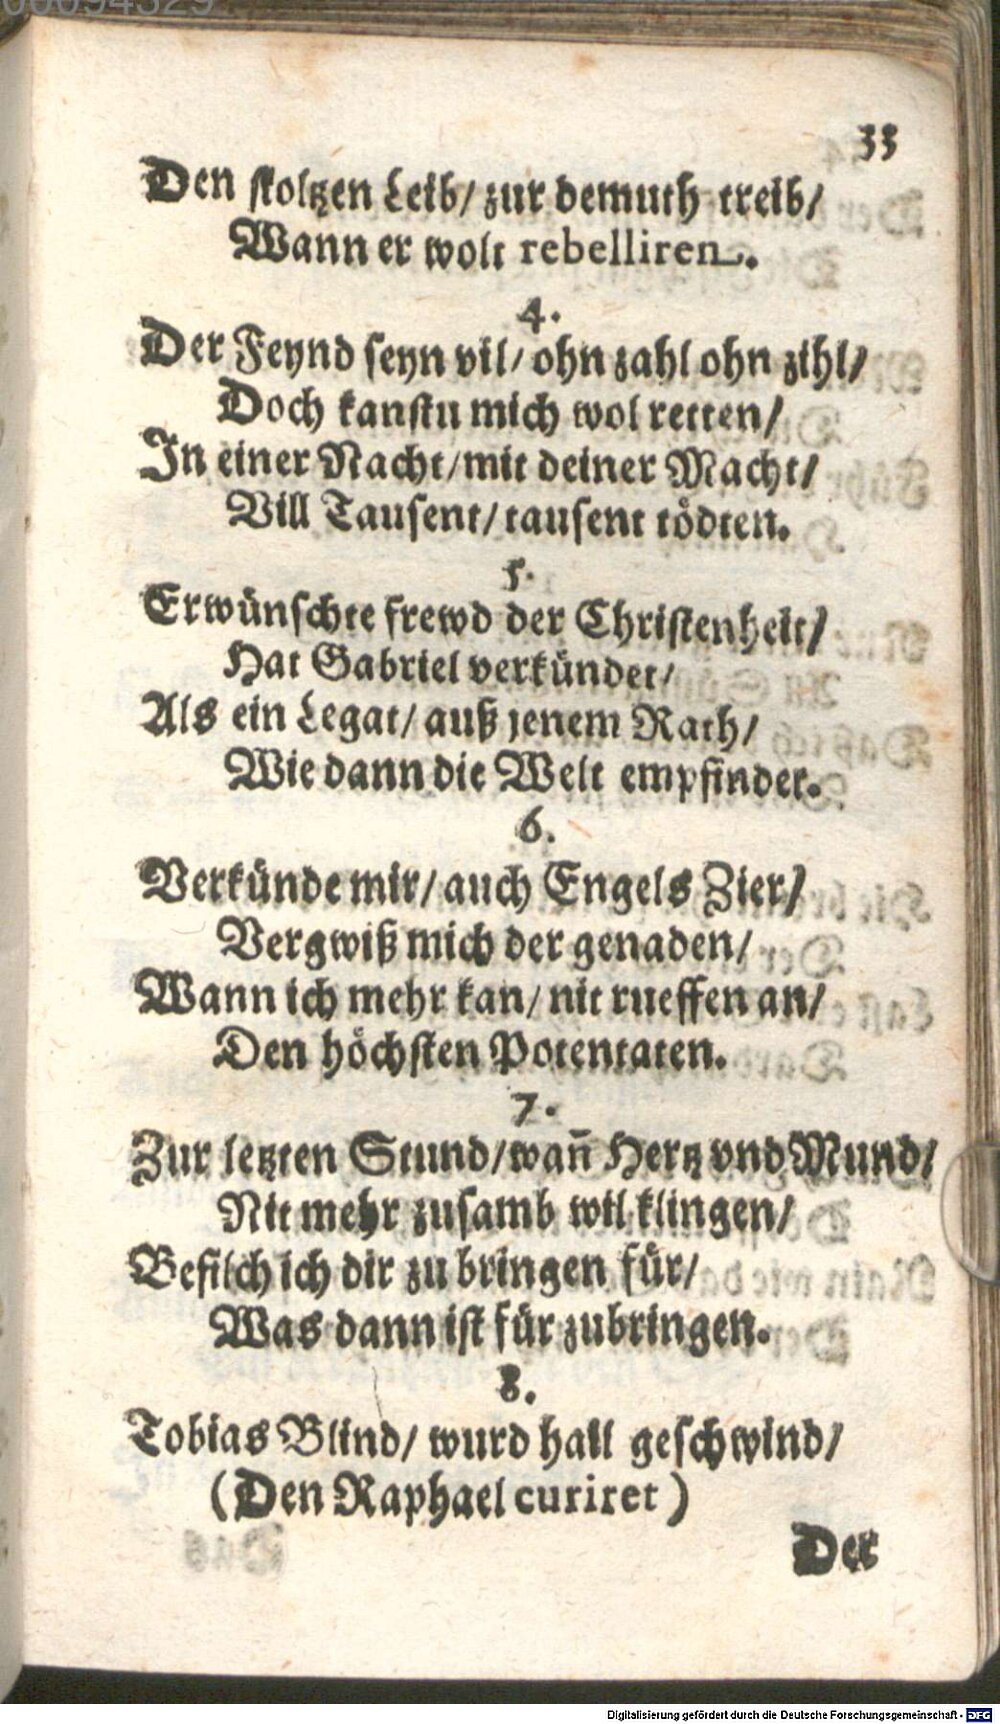 33
Den stoltzen Leib/ zur demuth treib/
Wann er wolt rebelliren.
4.
Der Feynd seyn vil/ ohn zahl ohn zihl/
Doch kanstu mich wol retten/
In einer Nacht/ mit deiner Macht/
Vill Tausent/ tausent tödten.
5.
Erwünschte frewd der Christenheit/
Hat Gabriel verkündet/
Als ein Legat/ auß jenem Rath/
Wie dann die Welt empfindet.
6.
Verkünde mir/ auch Engels Zier/
Vergwiß mich der genaden/
Wann ich mehr kan/ nit rueffen an/
Den höchsten Potentaten.
7.
Zur letzten Stund/ wañ Hertz vnd Mund/
Nit mehr zusamb wil klingen/
Befilch ich dir zu bringen für/
Was dann ist für zubringen.
8.
Tobias Blind/ wurd hail geschwind/
(Den Raphael curiret)
Der
Digitalisierung gefördert durch die Deutsche Forschungsgemeinschaft - DFG